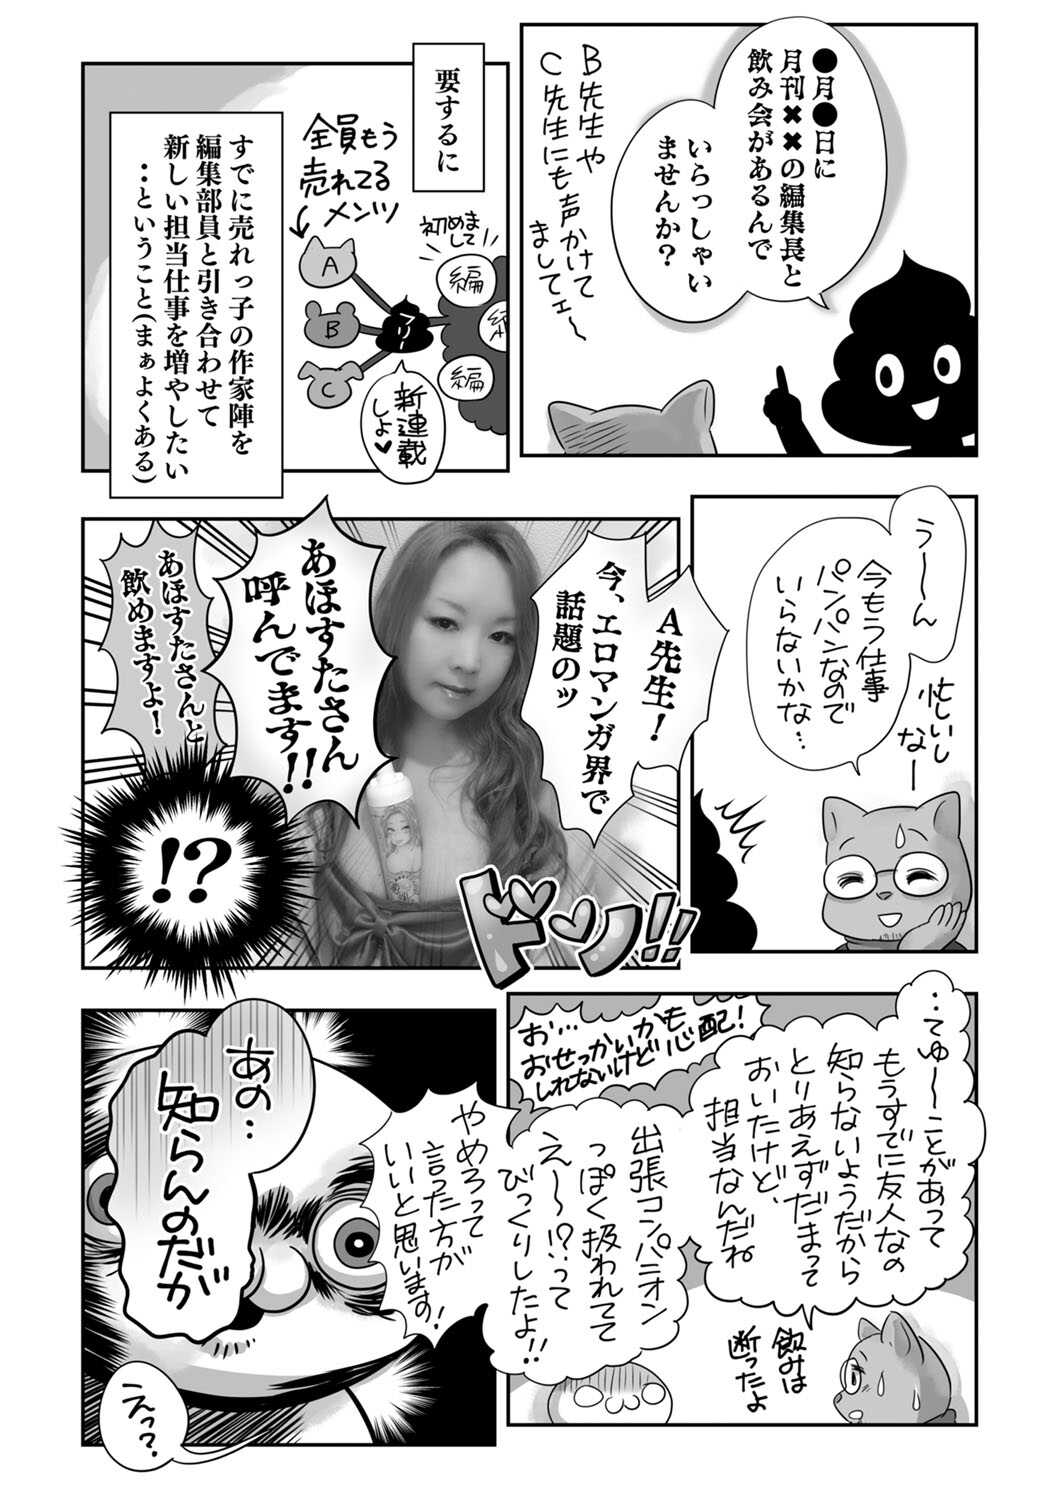 ●月●日に
月刊✖✖の編集長と
飲み会があるんで
いらっしゃい
ませんか？
B先生や
C先生にも声かけて
ましてェ〜
要するに
全員もう
売れてる
メンツ
初めまして
A
B
C
編
編
編
新連載
しよ♥
すでに売れっ子の作家陣を
編集部員と引き合わせて
新しい担当仕事を増やしたい
‥ということ(まぁよくある)
う〜〜ん
今もう仕事
パンパンなので
いらないかな‥
忙しいし
なー
A先生！
今、エロマンガ界で
話題のッ
あほすたさん
呼んでます!!
あほすたさんと
飲めますよ！
ドンッ!!
!?
‥てゆ〜〜ことがあって
もうすでに友人なの
知らないようだから
とりあえずだまって
おいたけど、
担当なんだね
飲みは
断ったよ
お…
おせっかいかも
しれないけど心配！
出張コンパニオン
っぽく扱われてて
え〜〜!?って
びっくりしたよ!!
やめろって
言った方が
いいと思います！
あの…
知らんのだが
えっ？